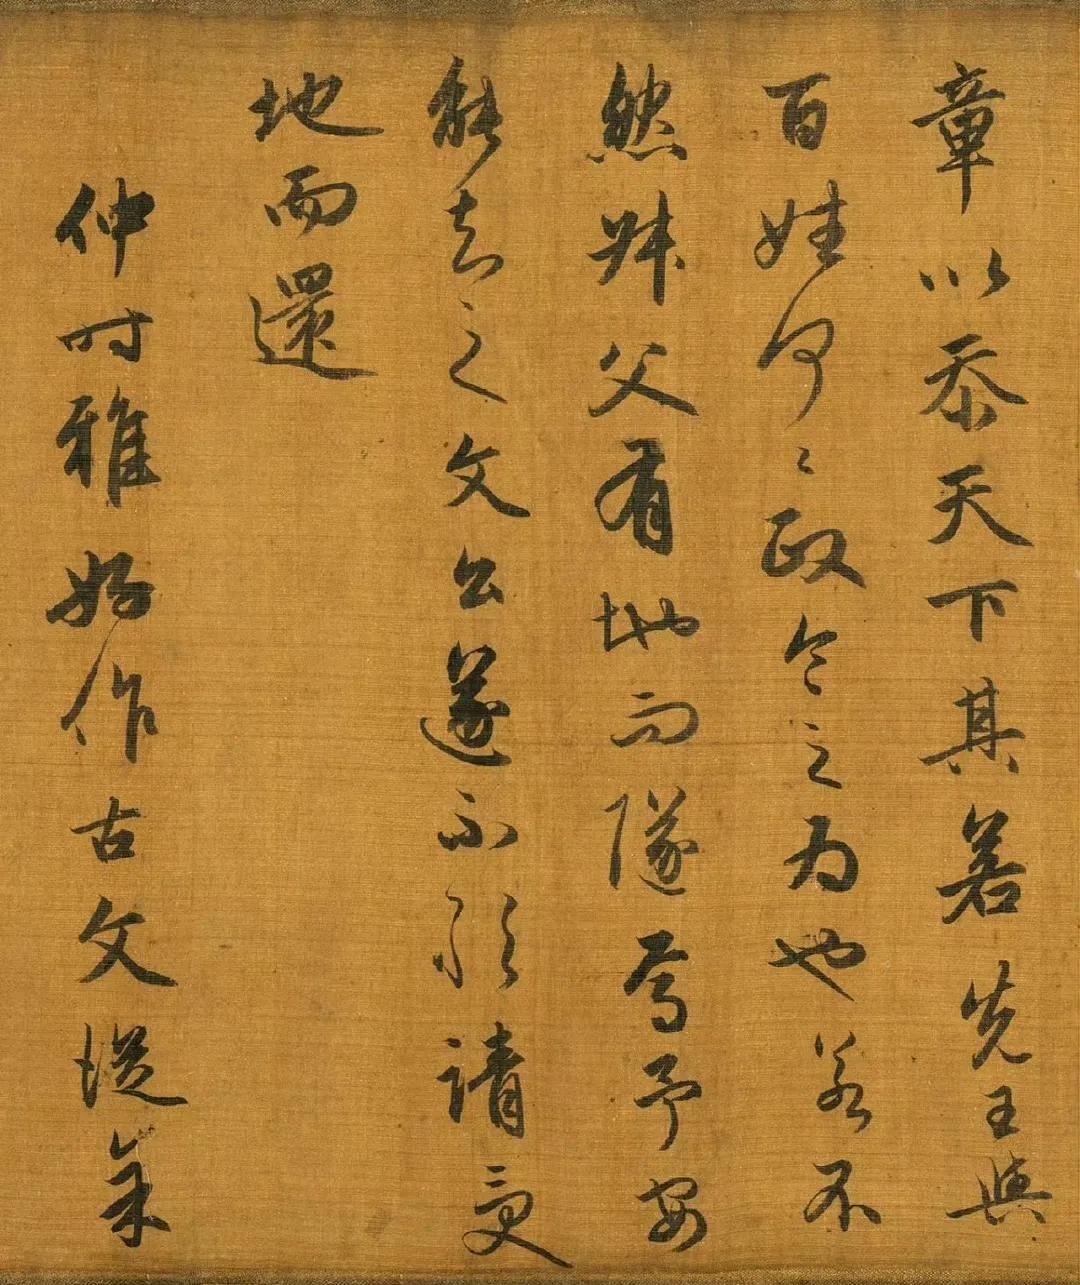 章以忝天下其若先王與
百姓何〻政令之為也若不
然叔父有地而隧焉予安
能知之文公遂不敢請受
地而還
仲时雅好作古文從